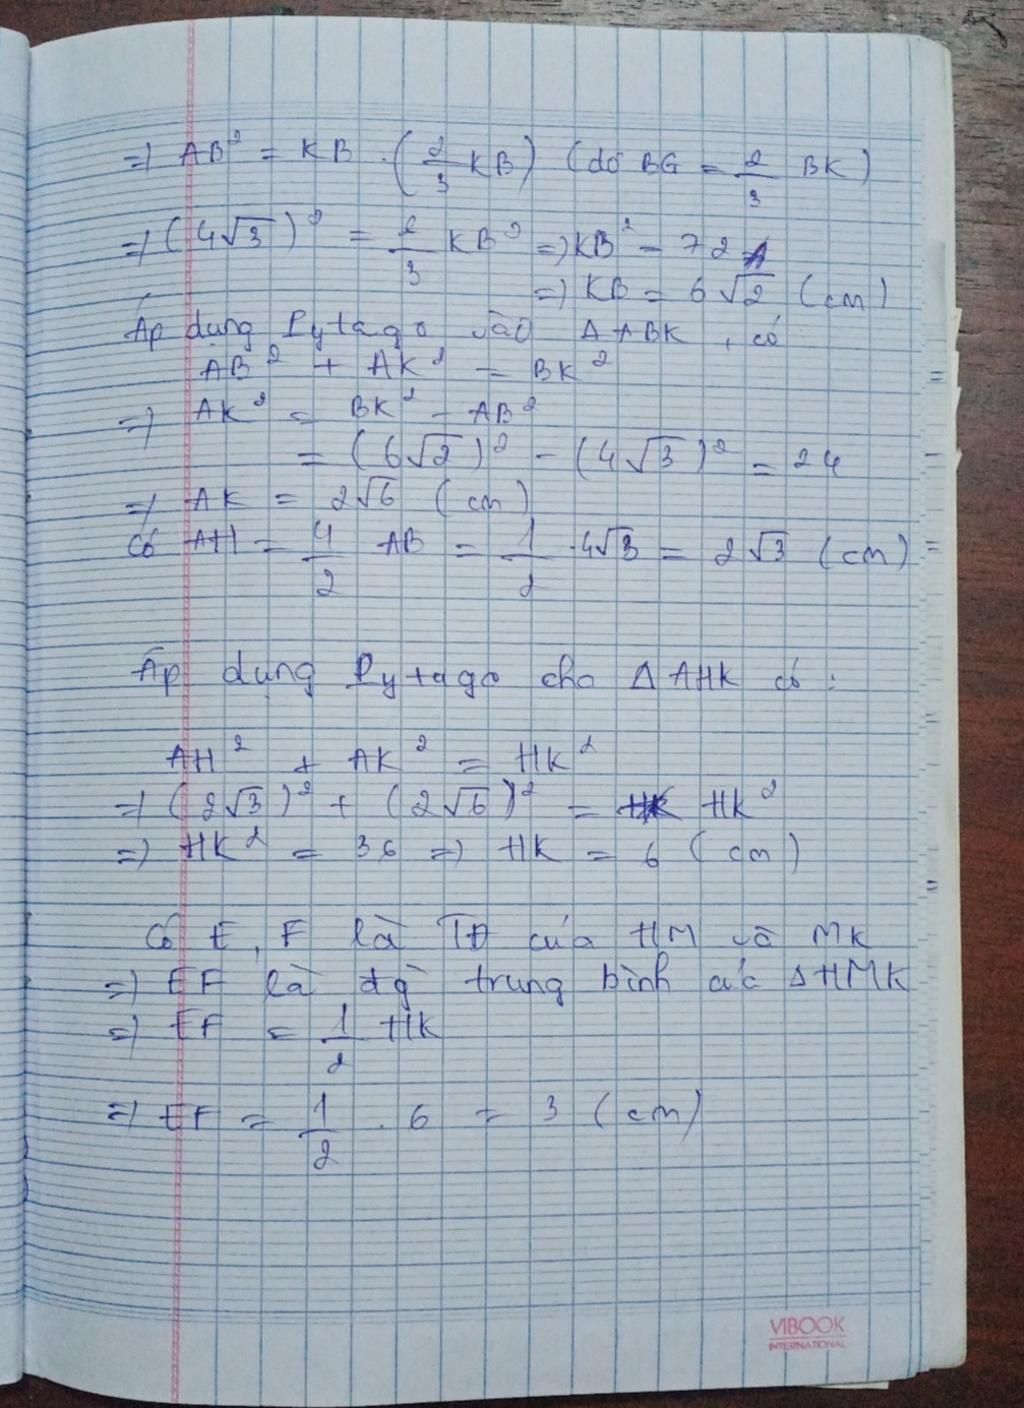 => AB² = KB . (2/3 KB) (do BG = 2/3 BK)
=> (4√3)² = 2/3 KB² => KB² = 72
=> KB = 6√2 (cm)
Áp dụng Pytago vào Δ ABK, có
AB² + AK² = BK²
=> AK² = BK² - AB²
= (6√2)² - (4√3)² = 24
=> AK = 2√6 (cm)
Có AH = 1/2 AB = 1/2 .4√3 = 2√3 (cm)
Áp dụng Pytago cho Δ AHK có :
AH² + AK² = HK²
=> (2√3)² + (2√6)² = HK²
=> HK² = 36 => HK = 6 (cm)
Có E, F là TĐ của HM và MK
=> EF là đg trung bình của ΔHMK
=> EF = 1/2 HK
=> EF = 1/2 . 6 = 3 (cm)
VIBOOK
INTERNATIONAL